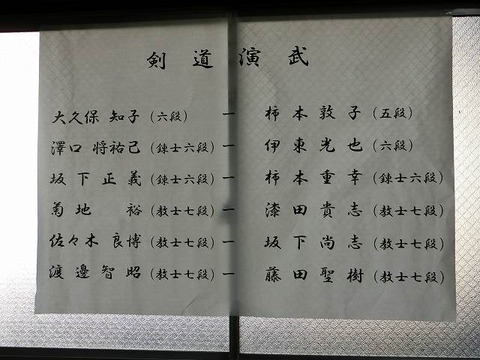 剣道演武
大久保 知子(六段) ー 柿本敦子(五段)
澤口 将祐己(錬士六段) ー 伊東光也(六段)
坂下正義(錬士六段) ー 柿本重幸(錬士六段)
菊地 裕(教士七段) ー 漆田貴志(教士七段)
佐々木 良博(教士七段) ー 坂下尚志(教士七段)
渡邉智昭(教士七段) ー 藤田聖樹(教士七段)